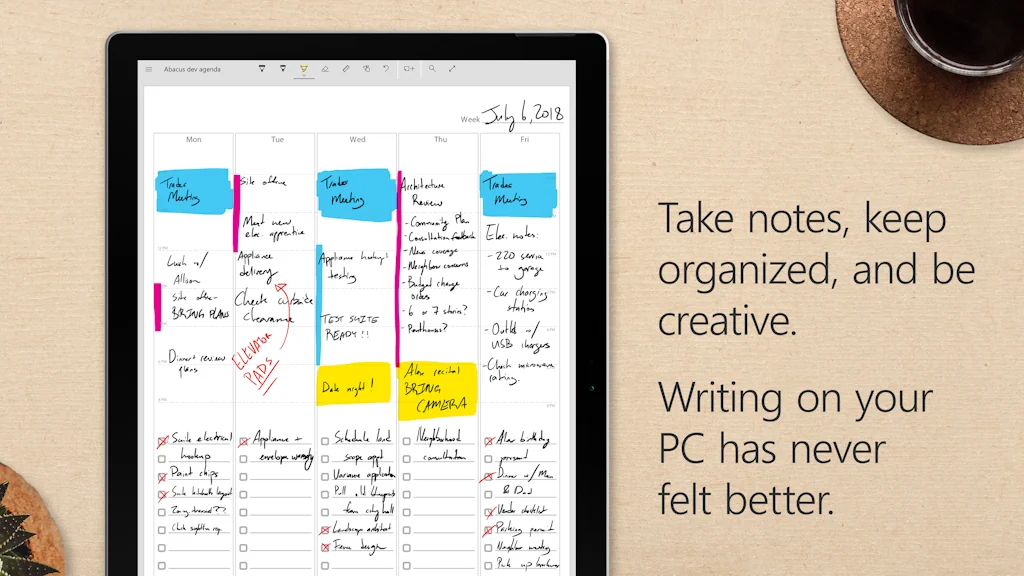 Abacus dev agenda
Week July 6, 2018
Mon Tue Wed Thu Fri
Trades
Meeting
Lunch w/
Allison
Site
BRING PLANS
Dinner review
plans
Site
Meet new
elec. apprentice
Appliance
delivery
Check curbside
clearance
ELEVATOR
PADS
Trades
Meeting
Appliance hookup:
testing
TEST SUITE
READY!!
Date night!
Architecture
Review
- Community Plan
- Consultation feedback
- News coverage
- Neighbor concerns
- Budget change
orders
- 6 or 7 stories?
- Penthouse?
Alex recital
BRING
CAMERA
Trades
Meeting
Elec. notes:
- 220 service
to garage
- Car charging
station
- Outlets w/
USB chargers
- Check microwave
rating.
12 PM
6 PM
8 PM
Suite electrical
hookup
Paint chips
Suite layout
Appliance +
envelope
Schedule land
scape appt
Variance application
Pull old blueprints
from city hall
Landscape architect
Fence design
Neighborhood
consultation
Alex birthday
present
Dinner w/ Mom
& Dad
Vendor checklist
Parking permit
Neighbor meeting
Pick up
Take notes, keep
organized, and be
creative.
Writing on your
PC has never
felt better.